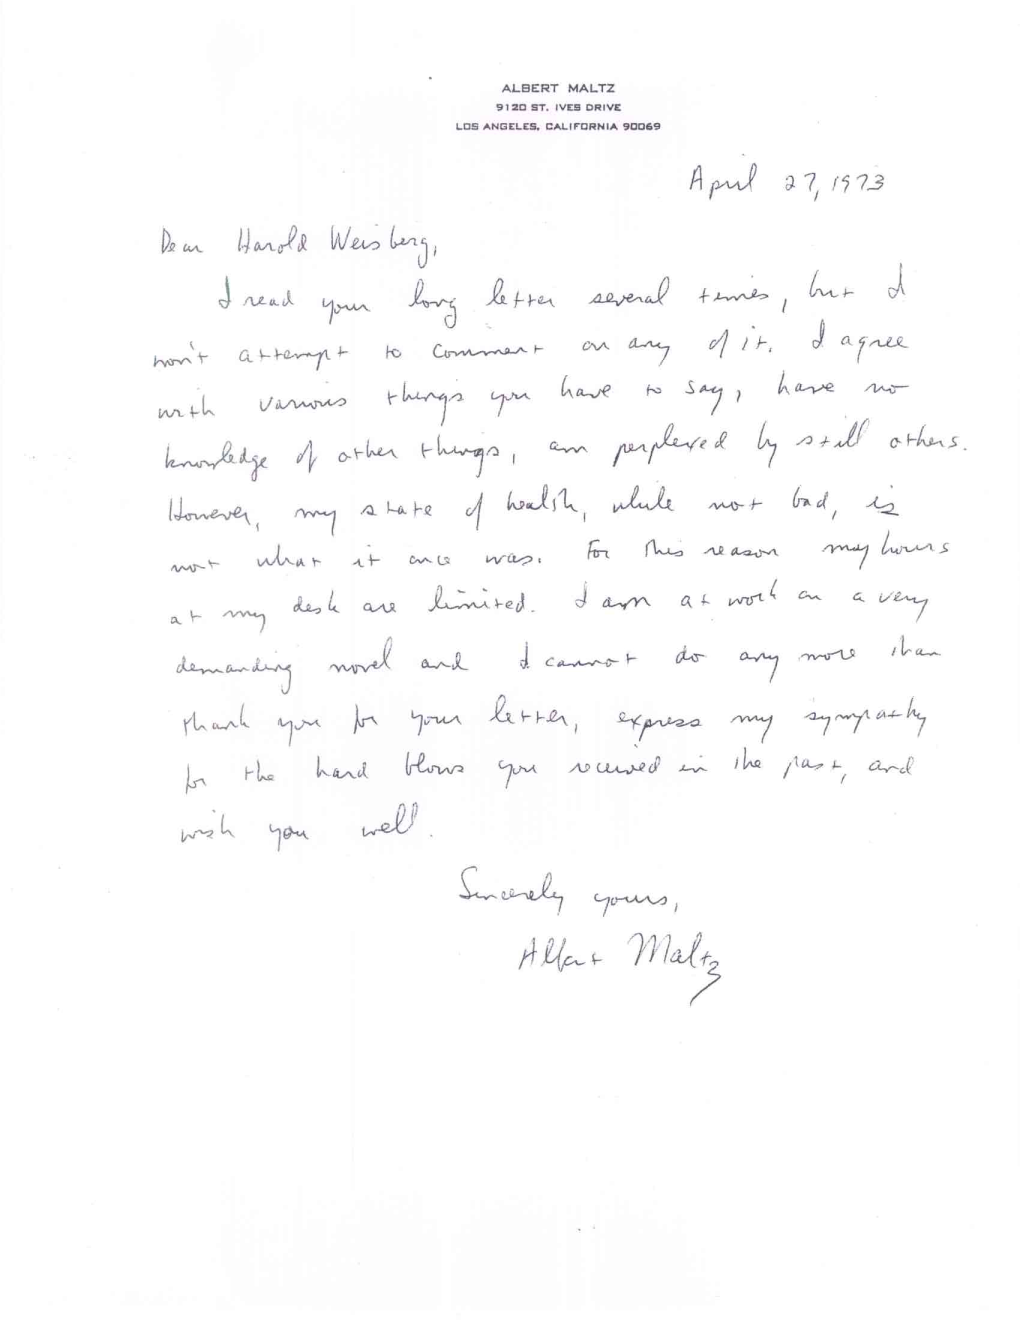 ALBERT MALTZ
9120 ST. IVES DRIVE
LOS ANGELES, CALIFORNIA 90069
April 27, 1973
Dear Harold Weisberg,
I read your long letter several times, but I
won't attempt to comment on any of it. I agree
with various things you have to say, have no
knowledge of other things, am perplexed by still others.
However, my state of health, while not bad, is
not what it once was. For this reason my hours
at my desk are limited. I am at work on a very
demanding novel and I cannot do any more than
thank you for your letter, express my sympathy
for the hard blows you received in the past, and
wish you well.
Sincerely yours,
Albert Maltz